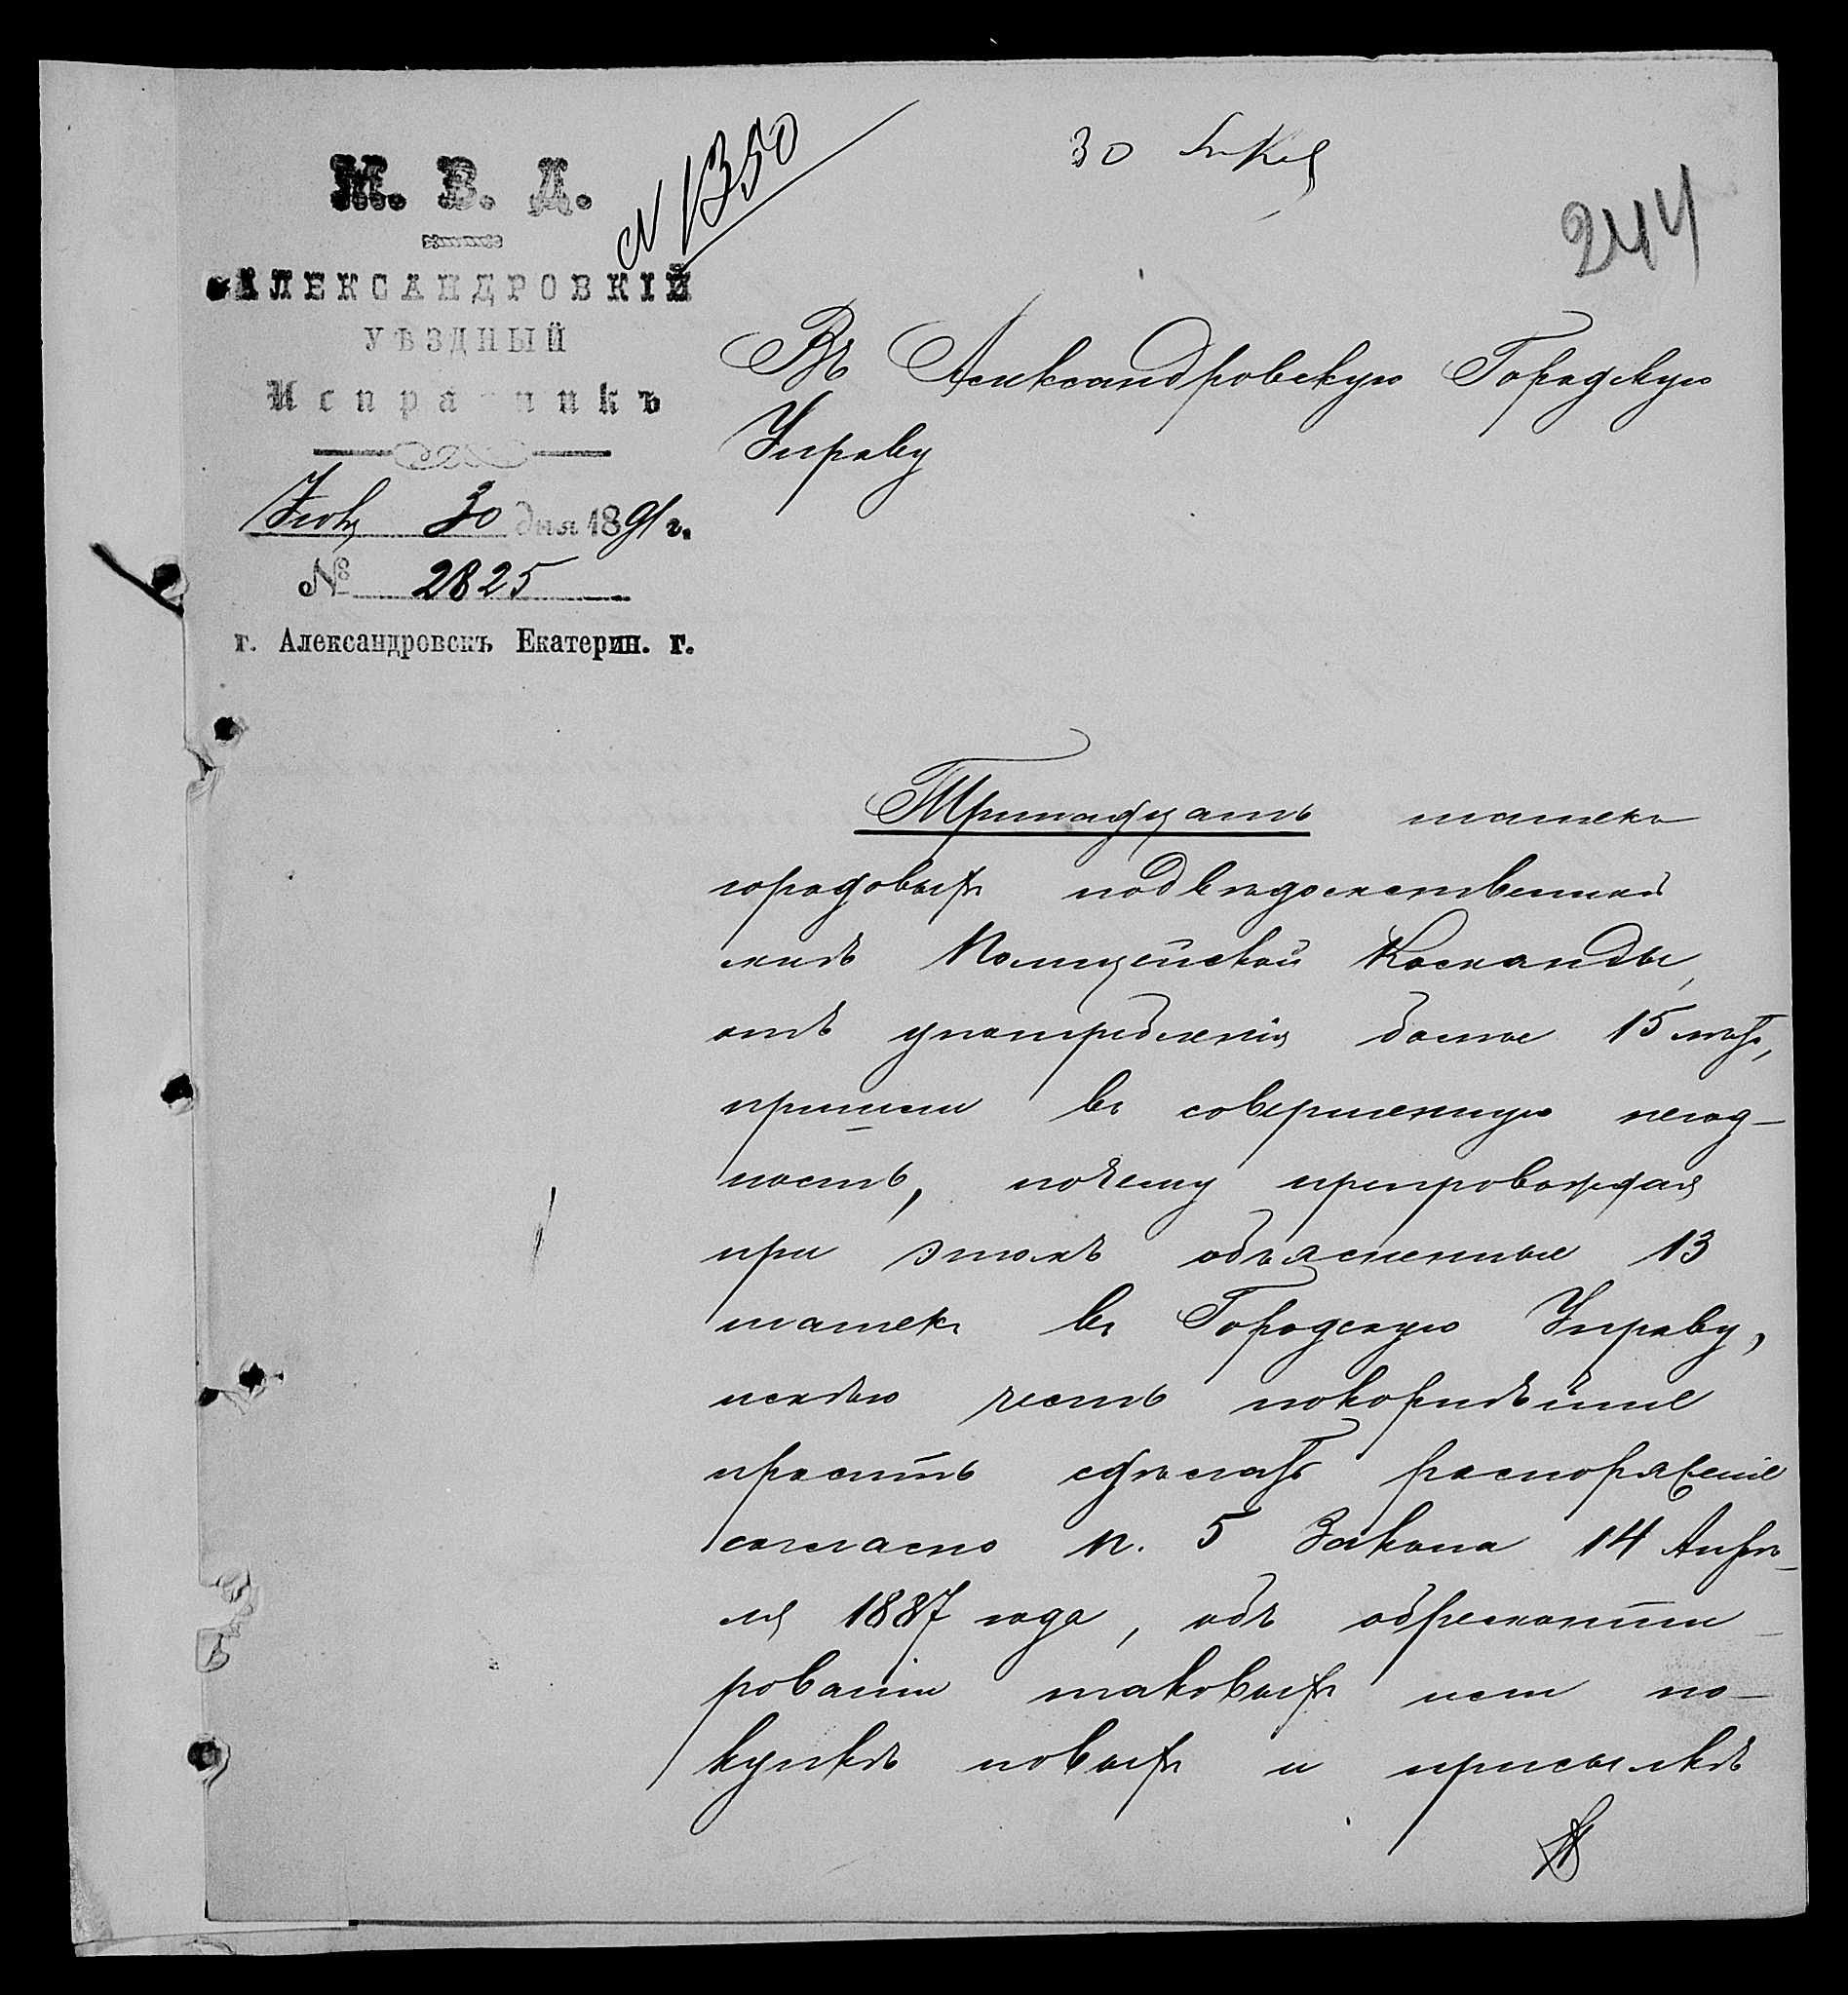 № 1350
30
244
М. В. Д.
АЛЕКСАНДРОВКІЙ
УѢЗДНЫЙ
Исправникъ
30 дня 1891 г.
№ 2825
г. Александровскъ Екатерин. г.
Въ Александровскую Городскую
Управу
Тринадцать шашекъ
городовыхъ подвѣдомственной
мнѣ Полицейской Команды,
отъ употребленія болѣе 15 лѣтъ,
пришли въ совершенную негод-
ность, почему препровождая
при этомъ объясненные 13
шашекъ въ Городскую Управу,
имѣю честь покорнѣйше
просить сдѣлать распоряженіе
согласно п. 5 Закона 14 Апрѣ-
ля 1887 года, объ обремонти-
рованіи таковыхъ или по-
купкѣ новыхъ и присылкѣ